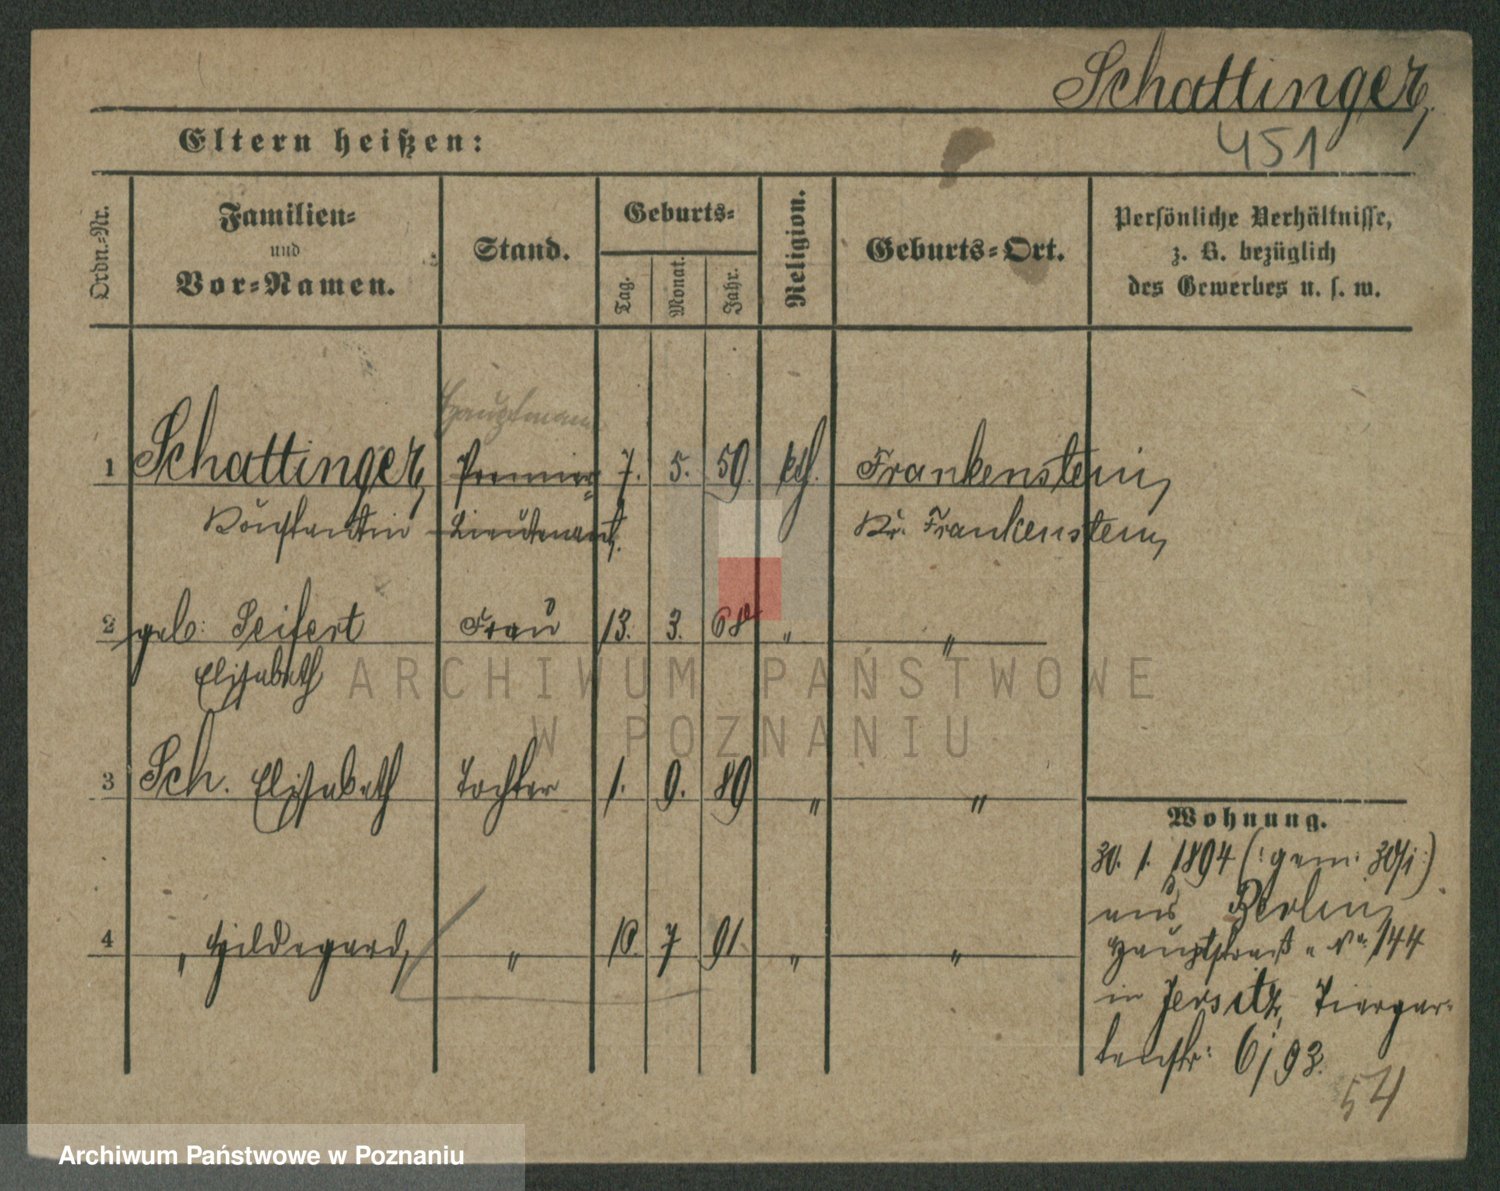 Schattinger,
451
Eltern heißen:
Ordn.-Nr.
Familien-
und
Vor-Namen.
Stand.
Geburts-
Tag.
Monat.
Jahr.
Religion.
Geburts-Ort.
Persönliche Verhältnisse,
z. B. bezüglich
des Gewerbes u. s. w.
Hauptmann
1 Schattinger, Premier- 7. 5. 59. kth. Frankenstein,
Konstantin Lieutenant. Kr. Frankenstein,
2 geb: Seifert Frau 13. 3. 68 " "
Elisabeth
ARCHIWUM PAŃSTWOWE
W POZNANIU
3 Sch. Elisabeth Tochter 1. 9. 89 " "
Wohnung.
30. 1. 1894 (: gem: 30/1:)
aus Berlin,
4 " Hildegard, " 10. 7 91. " "
Hauptstraße No. 144
in Jersitz, Tiergar-
tenstr: 6
54
Archiwum Państwowe w Poznaniu